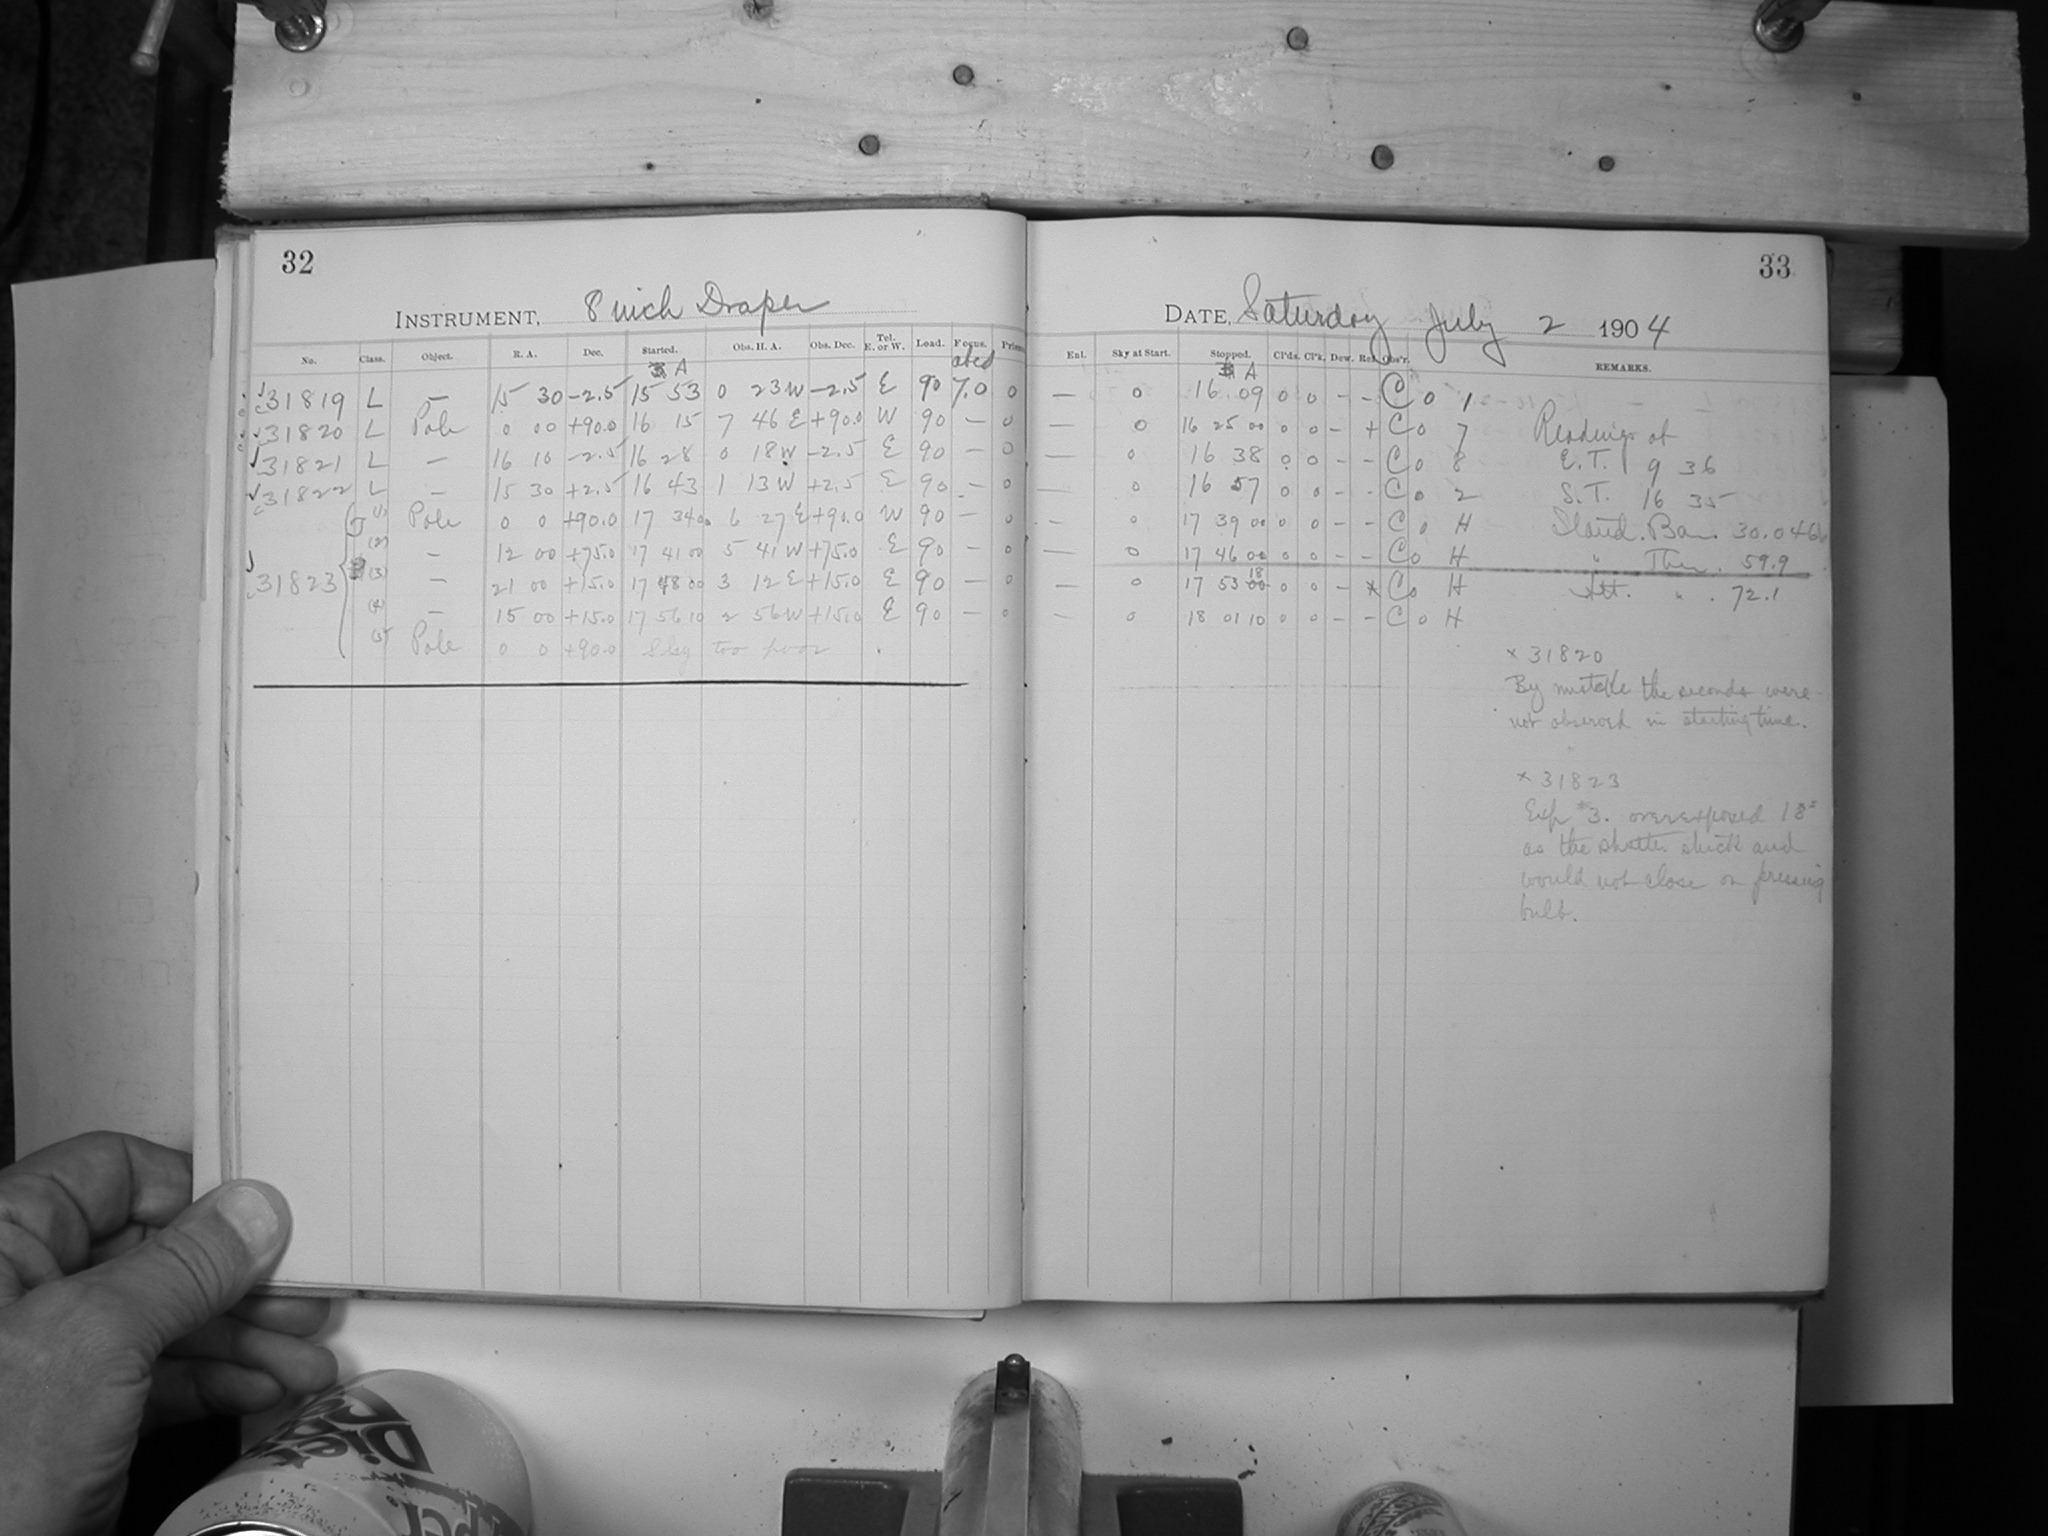 32
INSTRUMENT, 8 inch Draper
No. Class. Object. R. A. Dec. Started. Obs. H. A. Obs. Dec. Tel. E. or W. Load. Focus. Prism
A ated
31819 L — 15 30 -2.5 15 53 0 23 W -2.5 E 90 7.0 0
31820 L Pole 0 00 +90.0 16 15 7 46 E +90.0 W 90 — 0
31821 L — 16 10 -2.5 16 28 0 18 W -2.5 E 90 — 0
31822 L — 15 30 +2.5 16 43 1 13 W +2.5 E 90 — 0
(1) Pole 0 0 +90.0 17 34 00 6 27 E +90.0 W 90 — 0
(2) — 12 00 +75.0 17 41 00 5 41 W +75.0 E 90 — 0
31823 (3) — 21 00 +15.0 17 48 00 3 12 E +15.0 E 90 — 0
(4) — 15 00 +15.0 17 56 10 2 56 W +15.0 E 90 — 0
(5) Pole 0 0 +90.0 Sky too poor
33
DATE, Saturday July 2 1904
Enl. Sky at Start. Stopped. Cl'ds. Cl'k. Dew. Rej. Obs'r. REMARKS.
A
— 0 16 09 0 0 - - C 0 1
— 0 16 25 00 0 0 - + C 0 7 Readings at
— 0 16 38 0 0 - - C 0 8 E.T. 9 36
— 0 16 57 0 0 - - C 0 2 S.T. 16 35
— 0 17 39 00 0 0 - - C 0 H Stand. Bar. 30.046
— 0 17 46 00 0 0 - - C 0 H " Ther. 59.9
— 0 17 53 00 18 0 0 - × C 0 H Att. " . 72.1
— 0 18 01 10 0 0 - - C 0 H
× 31820
By mistake the seconds were
not observed in starting time.
× 31823
Exp #3. overexposed 18s
as the shutter stuck and
would not close on pressing
bulb.
Diet